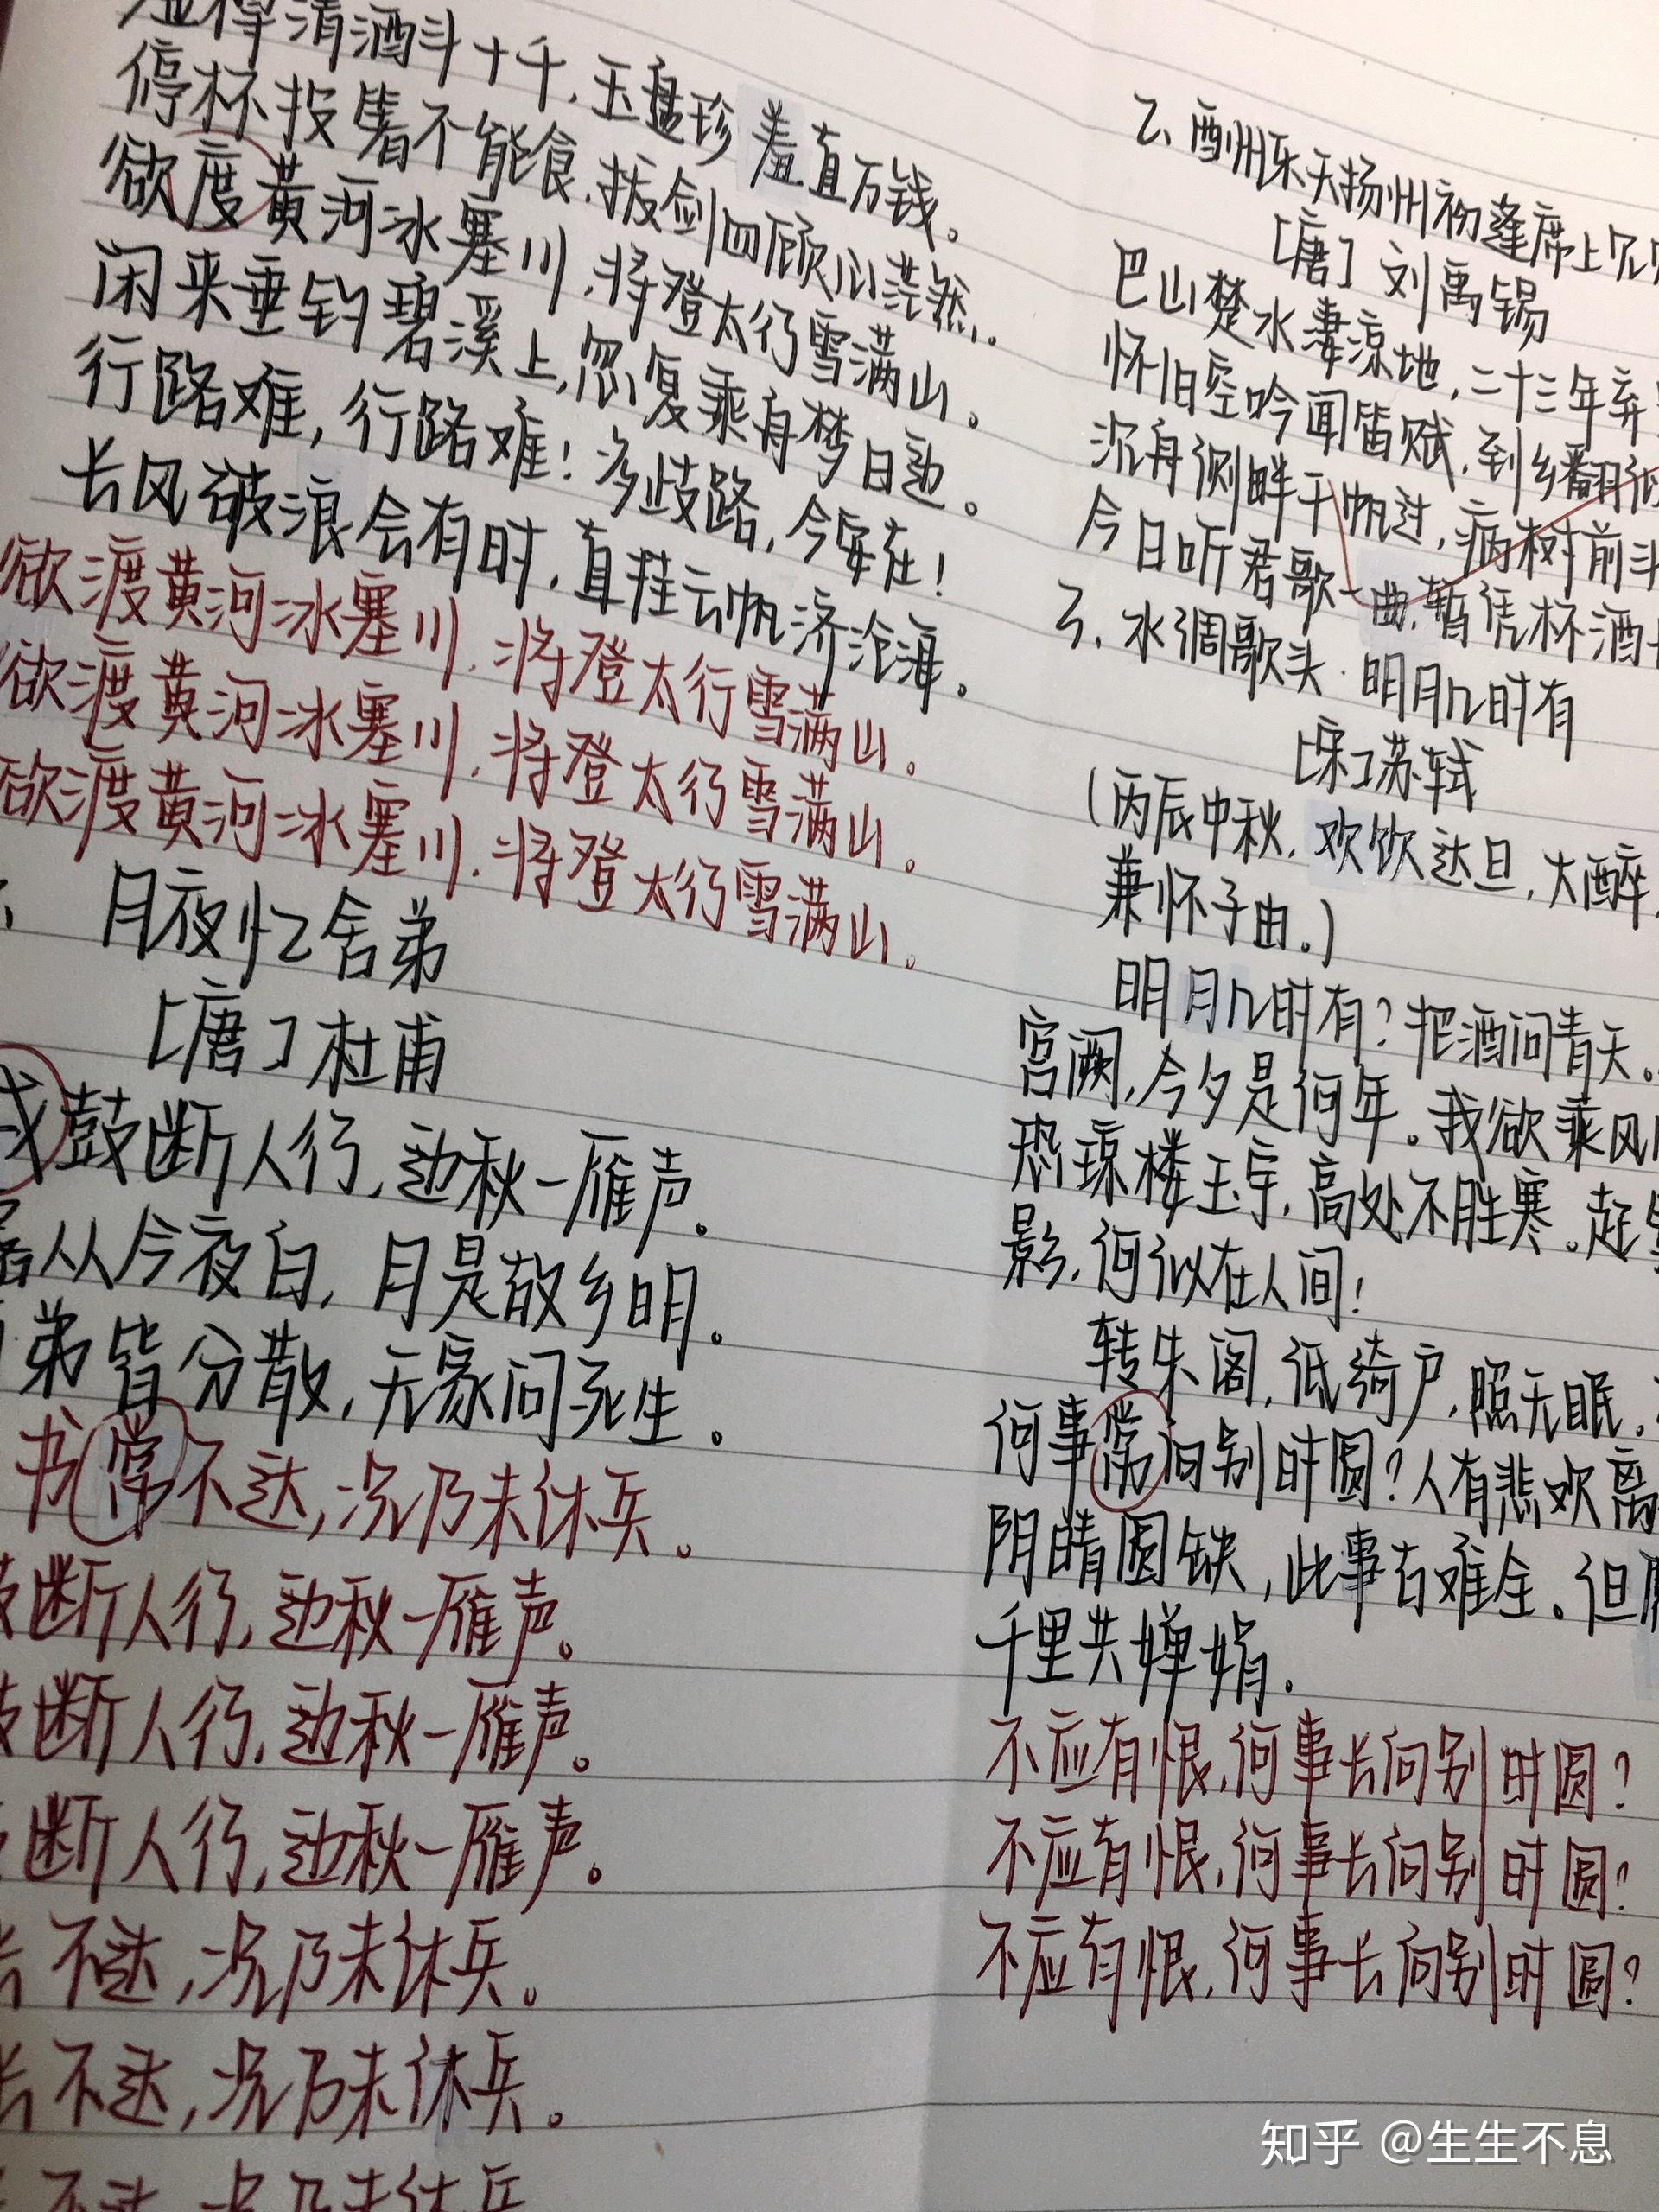 清酒斗十千,玉盘珍羞直万钱。
停杯投箸不能食,拔剑四顾心茫然。
欲度黄河冰塞川,将登太行雪满山。
闲来垂钓碧溪上,忽复乘舟梦日边。
行路难,行路难!多歧路,今安在!
长风破浪会有时,直挂云帆济沧海。
欲渡黄河冰塞川,将登太行雪满山。
欲渡黄河冰塞川,将登太行雪满山。
欲渡黄河冰塞川,将登太行雪满山。
月夜忆舍弟
[唐]杜甫
鼓断人行,边秋一雁声。
从今夜白,月是故乡明。
弟皆分散,无家问死生。
书常不达,况乃未休兵。
断人行,边秋一雁声。
断人行,边秋一雁声。
断人行,边秋一雁声。
不达,况乃未休兵。
不达,况乃未休兵。
不达,况乃未休兵
2、酬州乐天扬州初逢席上见
[唐]刘禹锡
巴山楚水凄凉地,二十三年弃
怀旧空吟闻笛赋,到乡翻似
沉舟侧畔千帆过,病树前头
今日听君歌一曲,暂凭杯酒
3、水调歌头·明月几时有
[宋]苏轼
(丙辰中秋,欢饮达旦,大醉,
兼怀子由。)
明月几时有?把酒问青天。
宫阙,今夕是何年。我欲乘风
恐琼楼玉宇,高处不胜寒。起
影,何似在人间!
转朱阁,低绮户,照无眠。
何事常向别时圆?人有悲欢离
阴晴圆缺,此事古难全。但
千里共婵娟。
不应有恨,何事长向别时圆?
不应有恨,何事长向别时圆?
不应有恨,何事长向别时圆?
知乎 @生生不息